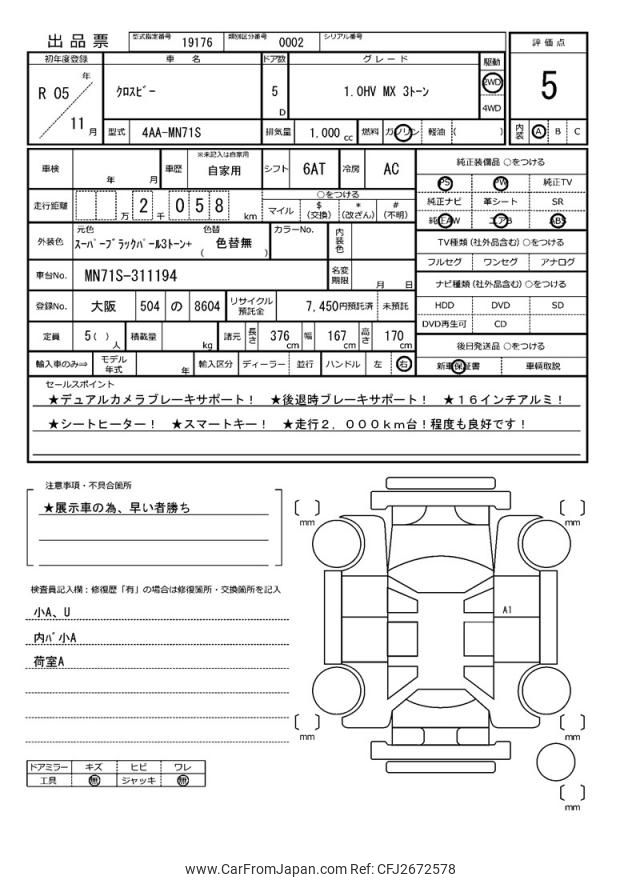 出品票 型式指定番号 19176 類別区分番号 0002 シリアル番号
評価点
5
内装 A B C
初年度登録 車名 ドア数 グレード 駆動
R 05 年 11 月
クロスビー
5 D
1.0HV MX 3トーン
2WD
4WD
型式 4AA-MN71S 排気量 1.000 cc 燃料 ガソリン 軽油 ( )
車検 年 月 車歴 ※未記入は自家用 自家用 シフト 6AT 冷房 AC
走行距離 万 2 千 0 5 8 km
○をつける
マイル $ (交換) * (改ざん) # (不明)
外装色 元色 色替
スーパーブラックパール3トーン+ ( 色替無 )
カラーNo. 内装色
車台No. MN71S-311194 名変期限 月 日
登録No. 大阪 504 の 8604 リサイクル預託金 7,450円預託済 未預託
定員 5( ) 人 積載量 kg 諸元 長さ 376 cm 幅 167 cm 高さ 170 cm
輸入車のみ⇒ モデル年式 年 輸入区分 ディーラー 並行 ハンドル 左 右
純正装備品 ○をつける
PS PW 純正TV
純正ナビ 革シート SR
純正AW エアB ABS
TV種類 (社外品含む) ○をつける
フルセグ ワンセグ アナログ
ナビ種類 (社外品含む) ○をつける
HDD DVD SD
DVD再生可 CD
後日発送品 ○をつける
新車保証書 車輌取説
セールスポイント
★デュアルカメラブレーキサポート! ★後退時ブレーキサポート! ★16インチアルミ!
★シートヒーター! ★スマートキー! ★走行2,000km台!程度も良好です!
注意事項・不具合箇所
★展示車の為、早い者勝ち
検査員記入欄:修復歴「有」の場合は修復箇所・交換箇所を記入
小A、U
内バ小A
荷室A
ドアミラー キズ ヒビ ワレ
工具 無 ジャッキ 無
mm
mm
A1
mm
mm
mm
www.CarFromJapan.com Ref: CFJ2672578